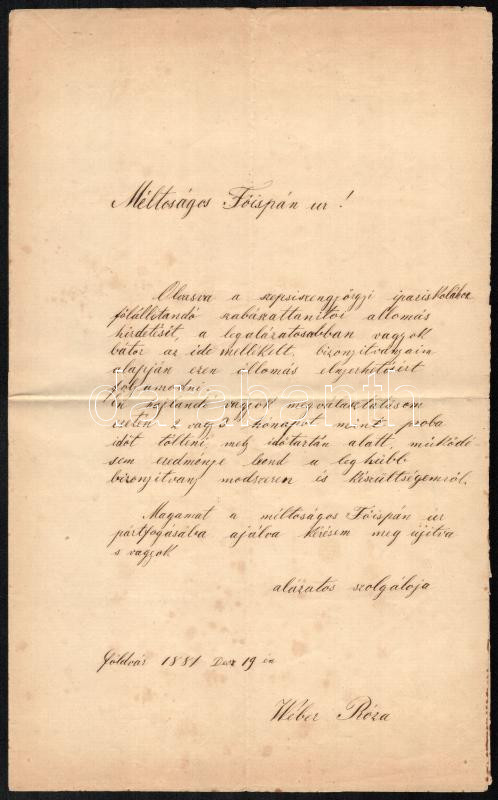 Méltoságos Főispán ur!
Olvasva a szepsiszengjörgyi ipariskolában
fölállitandó szabászattanitói állomás
hirdetését, a legalázatosabban vagyok
bátor az ide mellékelt bizonjitványaim
alapján ezen állomás elnyerhetéseért
folyamodni.
Én hajlandó vagyok megválasztatásom
esetén 2 vagy 3 hónapot mint próba
időt tölteni, mely időtartán alatt, müködé-
sem eredménje lend a leghübb
bizonjitvanj modszerem és készültségemröl.
Magamat a méltoságos Főispán úr
pártfogásába ajálva kérésem meg újitva
s vagyok
alázatos szolgáloja
Földvár 1881 Dec 19 én
Wéber Róza
darabanth.com